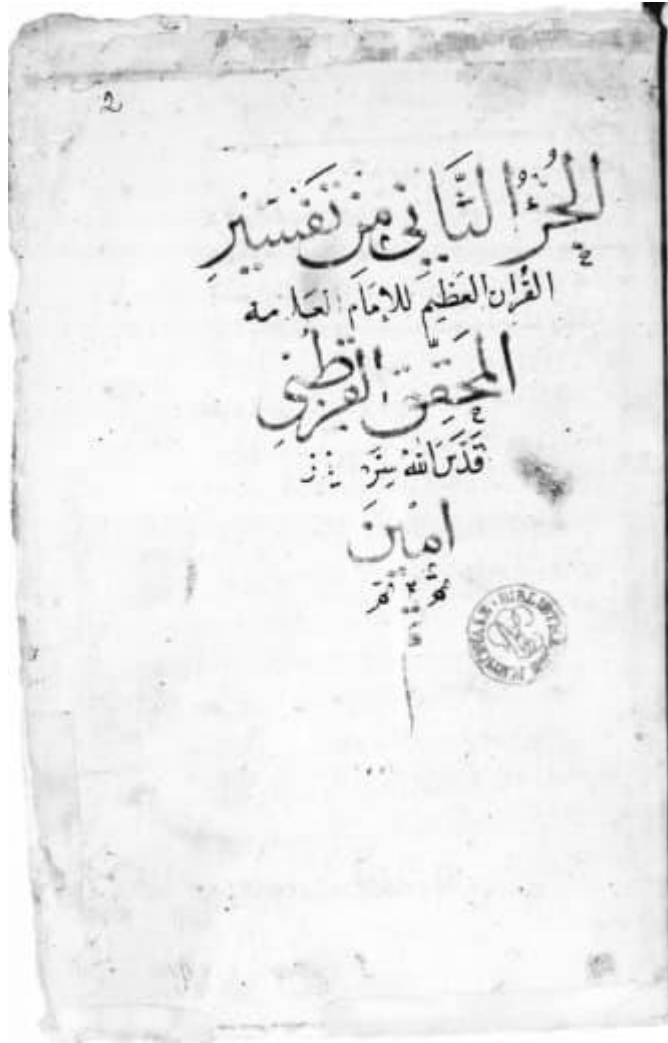 2
الجُزْءُ الثَّانِي مِنْ تَفْسِيرِ
القُرآن العَظِيمِ للإمَامِ العَلامة
المحَقِّقِ القُرطُبِي
قَدَّسَ اللهُ سِرَّه
امِينَ